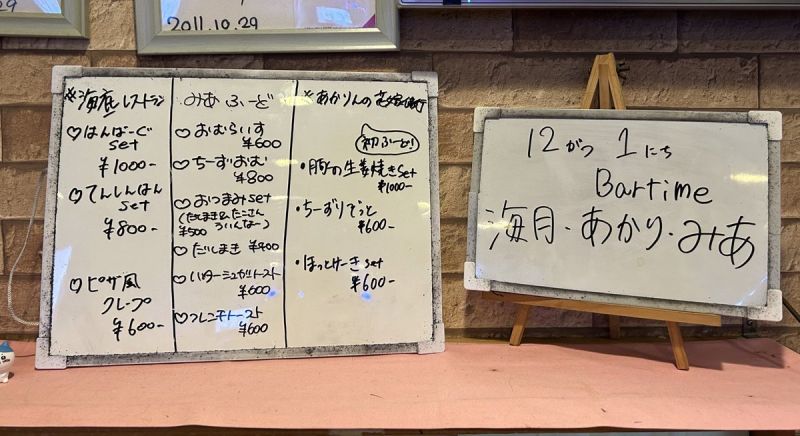 29
2011.10.29
※海底レストラン
♡はんばーぐ
set
¥1000-
♡てんしんはん
set
¥800-
♡ピザ風
クレープ
¥600-
みあふーど
♡おむらいす
¥600
♡ちーずおむ
¥800
♡おつまみset
(だしまき&たこさん
ういんなー)
¥500
♡だしまき ¥400
♡バターシュガートースト
¥600
♡フレンチトースト
¥600
※あかりんの
初ふーど!
・豚の生姜焼きset
¥1000-
・ちーずりぞっと
¥600-
・ほっとけーきset
¥600-
12がつ 1にち
Bartime
海月・あかり・みあ